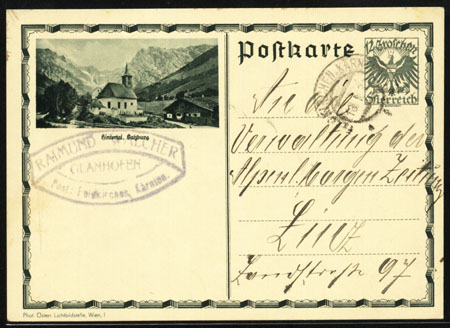 Postkarte
12 Groschen
Österreich
Hintertal, Salzburg
RAIMUND WALCHER
GLANHOFEN
Post: Feldkirchen, Kärnten
An die
Verwaltung der
Alpenl. Morgen Zeitung
Linz
Landstraße 97
Phot. Österr. Lichtbildstelle, Wien, I